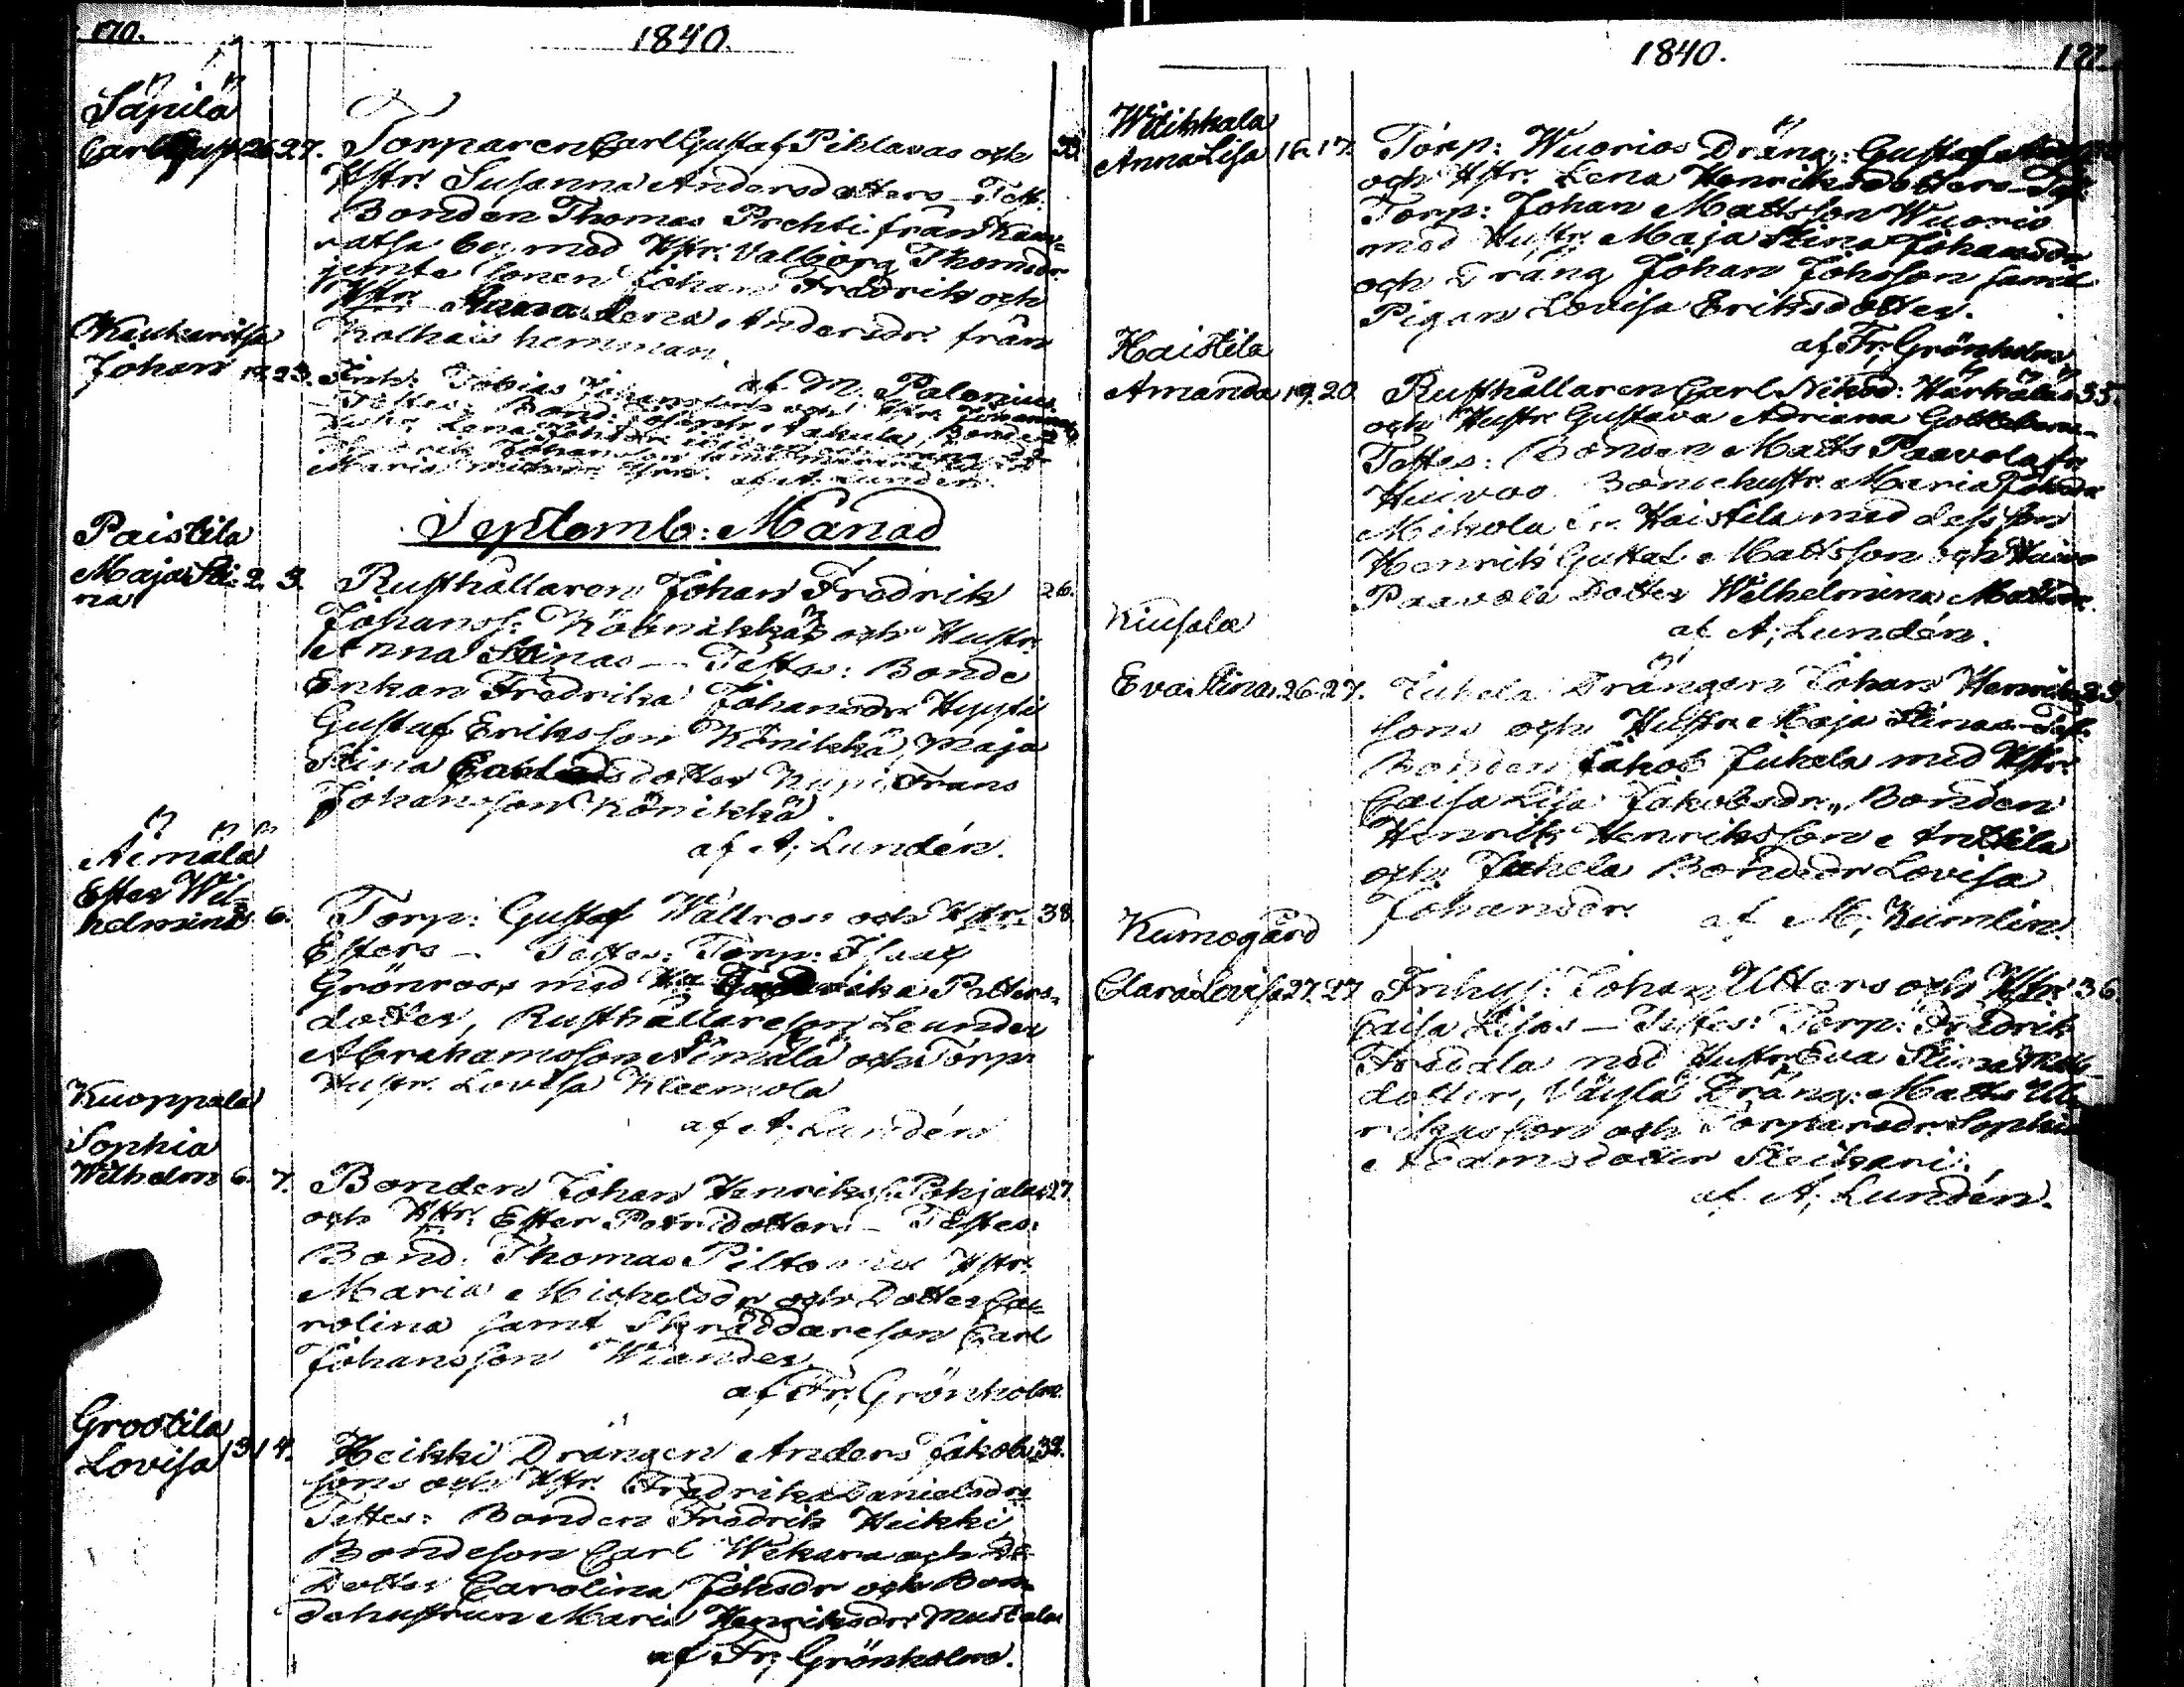 170.
1840.
Säpilä
Carl Gust. 26. 27. Torparen Carl Gustaf Pihlavas och 33.
Hstr. Susanna Andersdotters — Test.
Bonden Thomas Prehti från Kau-
ratsa by, med Hstr. Valborg Thomsdr.
jemte sonen Johan Fredrik och
Hstr. Anna Lena Andersdr. från
Kolhais hemman.
af M. Polenius.
Kaukaritsa
Johan 19. 23. Inh: Tobias Johanssons och Hstr.
Testes: Bond:
Hustr. Lena
Fredrik Johansson samt
Maria
af A. Lundén.
Septemb: Månad
Paistila
Maja Sti- 2. 3. Rusthållaren Johan Fredrik 26.
na
Johanss: Köönikkäs och Hustr.
Anna Stinas — Testes: Bonde
Enkan Fredrika Johansdr. Hyyti
Gustaf Eriksson Könikkä, Maja
Stina Carlsdotter Kupi Frans
Johansson Könikkä.
af A; Lundén.
Äimälä
Ester Wil-
helmina 6. Torp: Gustaf Wallroos och Hstr. 38.
Esters — Testes: Torp: Isaac
Grönroos med Fredrika Petters-
dotter, Rusthållareson Leander
Abrahamsson Äimälä och Torp.
Hustr. Lovisa Kleemola
af A; Lundén
Kuoppala
Sophia
Wilhelm. 6. 7. Bonden Johan Henrikss. Pohjalas 27.
och Hstr. Ester Petridotters — Testes:
Bond. Thomas Pilto med Hstr.
Maria Michelsdr. och Dotter Ca-
rolina samt Skräddareson Carl
Johansson Wiander.
af Fr; Grönholm.
Grootila
Lovisa 13. 14. Heikki Drängen Anders Jakobs- 32.
sons och Hstr. Fredrika Danielsdrs
Testes: Bonden Fredrik Heikki
Bondeson Carl Wekara och
Dotter Carolina Johsdr och Bon-
dehustrun Maria Henriksdr. Mustala
af Fr; Grönholm.
1840.
171.
Witikkala
Anna Lisa 16. 17. Torp: Wuorios Dräng: Gustaf
och Hstr. Lena Henriksdotters — Test.
Torp: Johan Mattsson Wuorio
med Hustr. Maja Stina Johansdr.
och Dräng Johan Johsson samt
Pigan Lovisa Eriksdotter.
af Fr; Grönholm.
Haistila
Amanda 19. 20. Rusthållaren Carl Nikod: Härkäläs 35.
och Hustr. Gustava Adriana
Testes: Bonden Matts Paavola fr.
Huivoo Bondehustr. Maria Johsdr
Mikola fr. Haistila med dess son
Henrik Gustaf Mattsson och
Paavola Dotter Wilhelmina Mattsdr.
af A; Lundén.
Kiusala
Eva Stina 26. 27. Juhela Drängen Johan Henriks- 23.
sons och Hustr. Maja Stinas — Test.
Bonden Jakob Juhela med Hstr.
Caisa Lisa Jakobsdr., Bonden
Henrik Henriksson Anttila
och Juhela Bondedr Lovisa
Johansdr. af M; Kumlin.
Kumogård
Clara Lovisa 27. 27. Inhys: Johan Utters och Hstr. 36.
Caisa Lisas — Testes: Torp: Fredrik
med Hustr. Eva Stina Matts-
dotter, Väylä Dräng: Matts Ul-
riksson och Torparedr. Sophia
Adamsdotter
af A; Lundén.